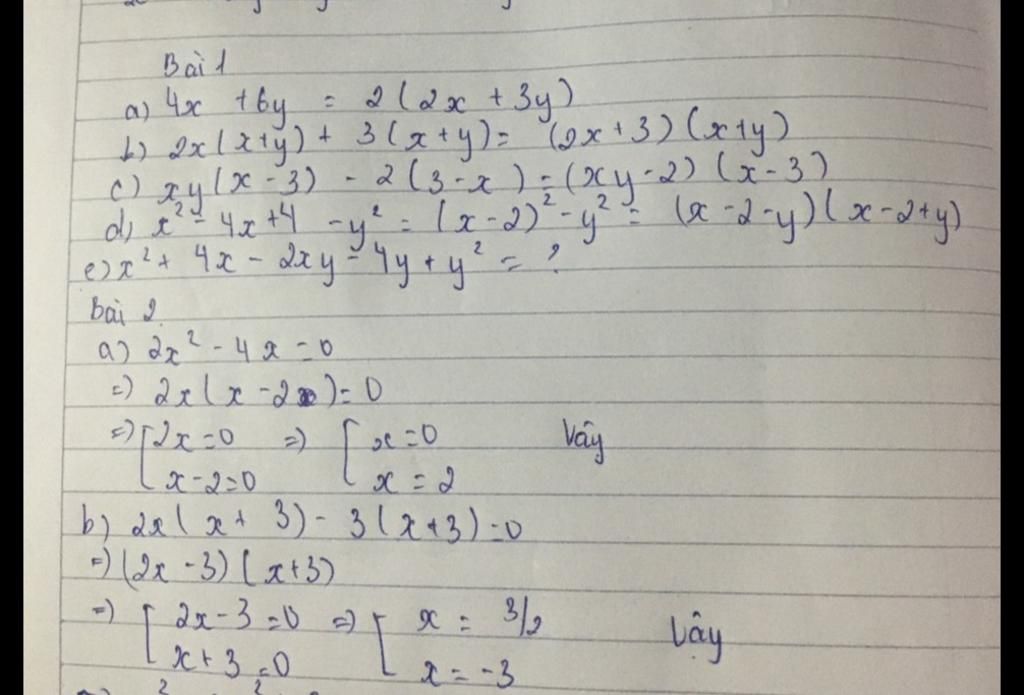 Bài 1
a) 4x + 6y = 2(2x + 3y)
b) 2x(x+y) + 3(x+y) = (2x+3)(x+y)
c) xy(x-3) - 2(3-x) = (xy-2)(x-3)
d) x² - 4x+4 - y² = (x-2)² - y² = (x-2-y)(x-2+y)
e) x² + 4x - 2xy - 4y + y² = ?
Bài 2
a) 2x² - 4x = 0
=) 2x(x-2) = 0
=) [2x=0 =) [x=0 Vây
x-2=0 x = 2
b) 2x(x+3) - 3(x+3) = 0
=) (2x-3)(x+3)
=) [2x-3=0 =) [x = 3/2 Vậy
x+3=0 x = -3